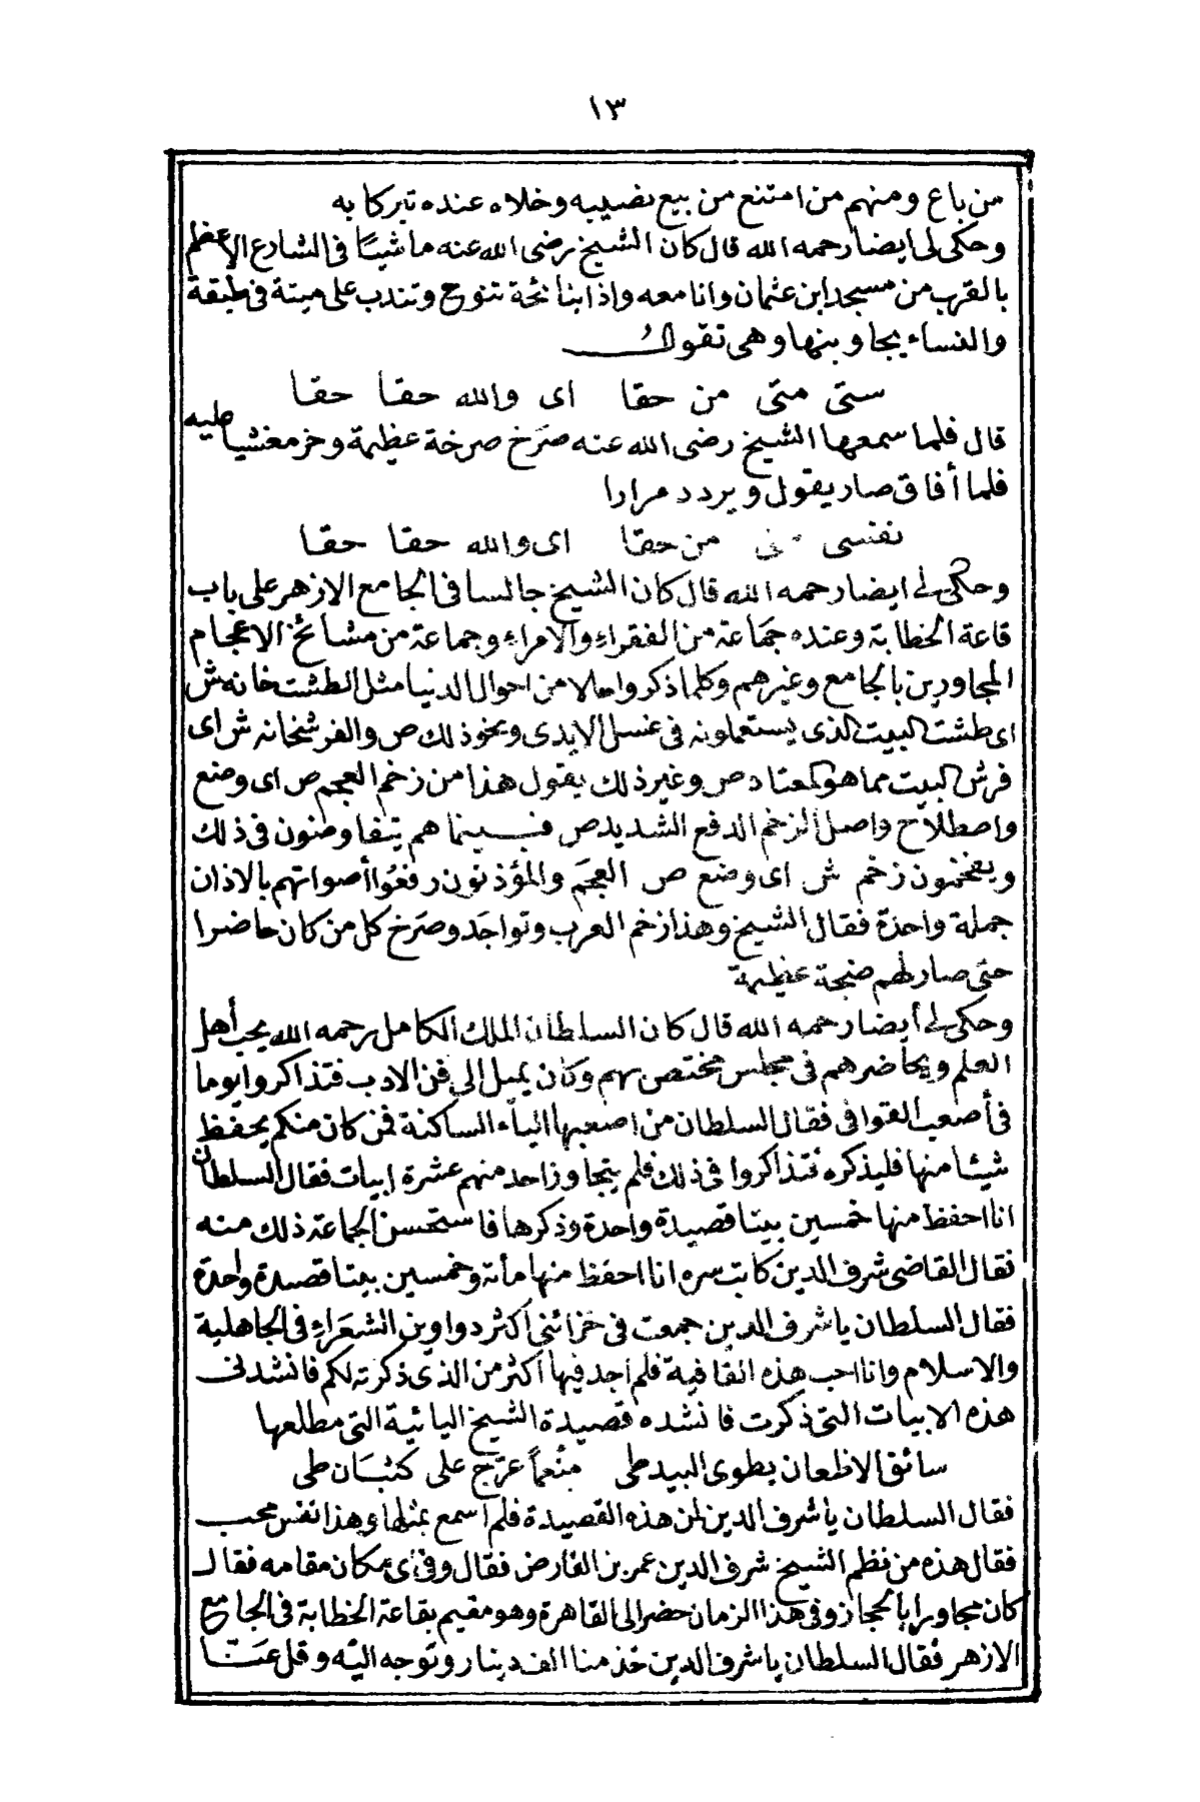 ١٣
من باع ومنهم من امتنع من بيع نصيبه وخلاه عنده تبركا به
وحكى لى ايضا رحمه الله قال كان الشيخ رضى الله عنه ماشيًا فى الشارع الاعظم
بالقرب من مسجد ابن عثمان وانا معه واذا بنائحة تنوح وتندب على ميتة فى طبقة
والنساء يجاوبنها وهى تقول
ستى متى من حقا اى والله حقا حقا
قال فلما سمعها الشيخ رضى الله عنه صرَخ صرخة عظيمة وخر مغشيا عليه
فلما أفاق صار يقول ويردد مرارا
نفسى من حقا اى والله حقا حقا
وحكى لى ايضا رحمه الله قال كان الشيخ جالسا فى الجامع الازهر على باب
قاعة الخطابة وعنده جمَاعة من الفقراءِ والامراءِ وجماعة من مشائخ الاعجام
المجاورين بالجامع وغيرهم وكلما ذكروا حالا من احوال الدنيا مثل الطشت خانه ش
اى طشت البيت الذى يستعملونه فى غسل الايدى ونحو ذلك ص والفرشخانه ش اى
فرش البيت مما هو المعتاد ص وغير ذلك يقول هذا من زخم العجم ص اى وضع
واصطلاح واصل الزخم الدفع الشديد ص فبينما هم يتفاوضون فى ذلك
ويفخمون زخم ش اى وضع ص العجَم والمؤذنون رفعُوا أصواتهم بالاذان
جملة واحدة فقال الشيخ وهذا زخم العرب وتواجَد وصرَخ كل من كان حاضرا
حتى صار لهم ضجة عظيمة
وحكى لى أيضا رحمه الله قال كان السلطان الملك الكامل رحمه الله يحب أهل
العلم ويحاضرهم فى مجلس مختص بهم وكان يميل الى فن الادب فتذاكروا يوما
فى أصعب القوافى فقال السلطان من اصعبها الياء الساكنة فمن كان منكم يحفظ
شيئا منها فليذكره فتذاكروا فى ذلك فلم يتجاوز احد منهم عشرة ابيات فقال السلطان
انا احفظ منها خمسين بيتا قصيدة واحدة وذكرها فاستحسن الجماعة ذلك منه
فقال القاضى شرف الدين كاتب سره انا احفظ منها مأنة وخمسين بيتا قصيدة واحدة
فقال السلطان يا شرف الدين جمعت فى خزائنى أكثر دواوين الشعَراءِ فى الجاهلية
والاسلام وانا احب هذه القافية فلم اجد فيها اكثر من الذى ذكرته لكم فانشدنى
هذه الابيات التى ذكرت فانشده قصيدة الشيخ اليائية التى مطلعها
سائق الاظعان يطوى البيد طى منعماً عرّج على كثبَان طى
فقال السلطان يا شرف الدين لمن هذه القصيدة فلم اسمع بمثلها وهذا نفس محب
فقال هذه من نظم الشيخ شرف الدين عمر بن الفارض فقال وفى أى مكان مقامه فقال
كان مجاورا بالحجاز وفى هذا الزمان حضر الى القاهرة وهو مقيم بقاعة الخطابة فى الجامع
الازهر فقال السلطان يا شرف الدين خذ منا الف دينار وتوجه اليه وقل عنَّا